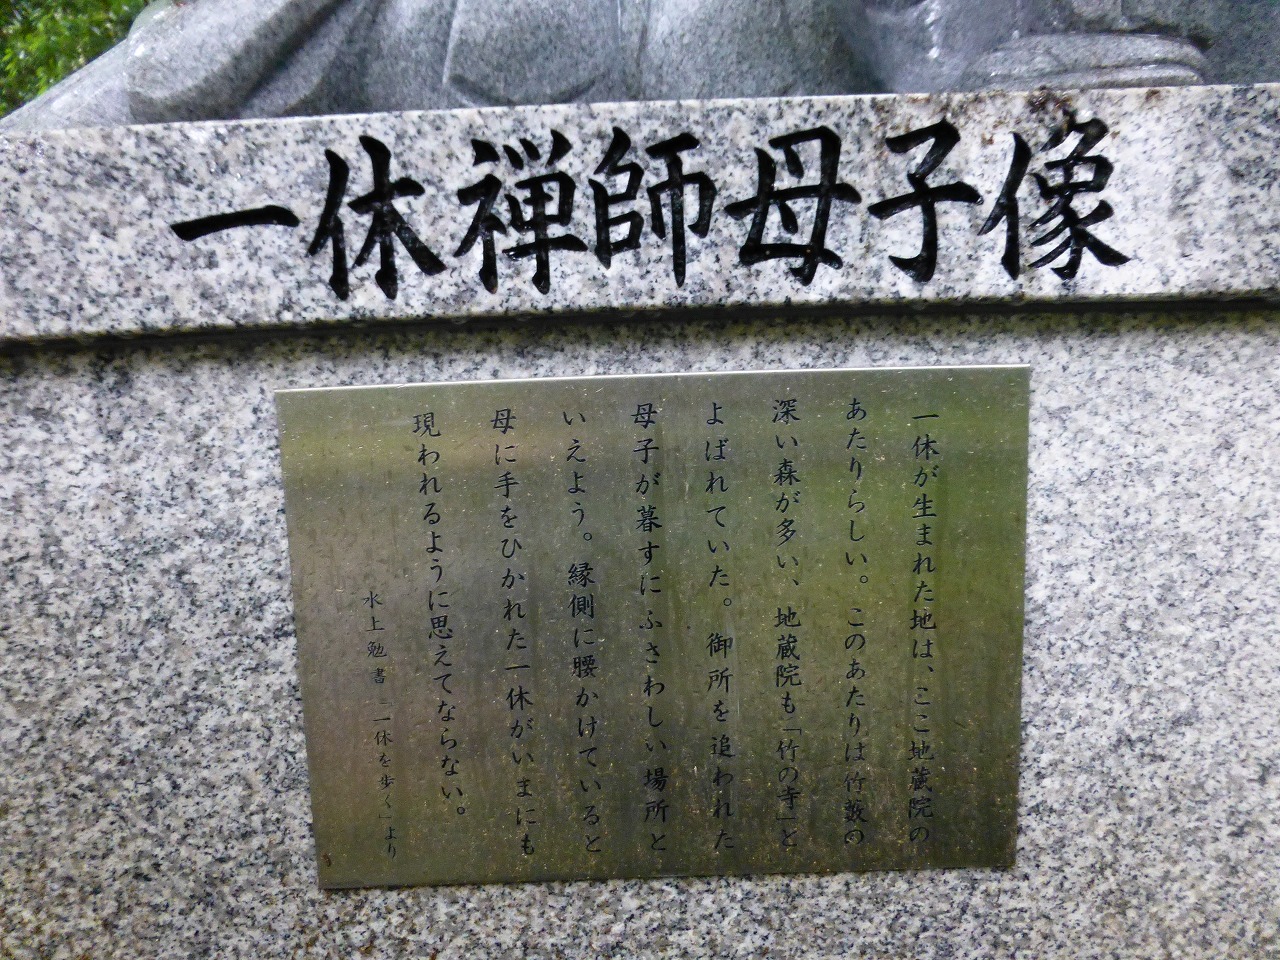 一休禅師母子像
一休が生まれた地は、ここ地蔵院の
あたりらしい。このあたりは竹薮の
深い森が多い、地蔵院も「竹の寺」と
よばれていた。御所を追われた
母子が暮すにふさわしい場所と
いえよう。縁側に腰かけていると
母に手をひかれた一休がいまにも
現われるように思えてならない。
水上勉書「一休を歩く」より